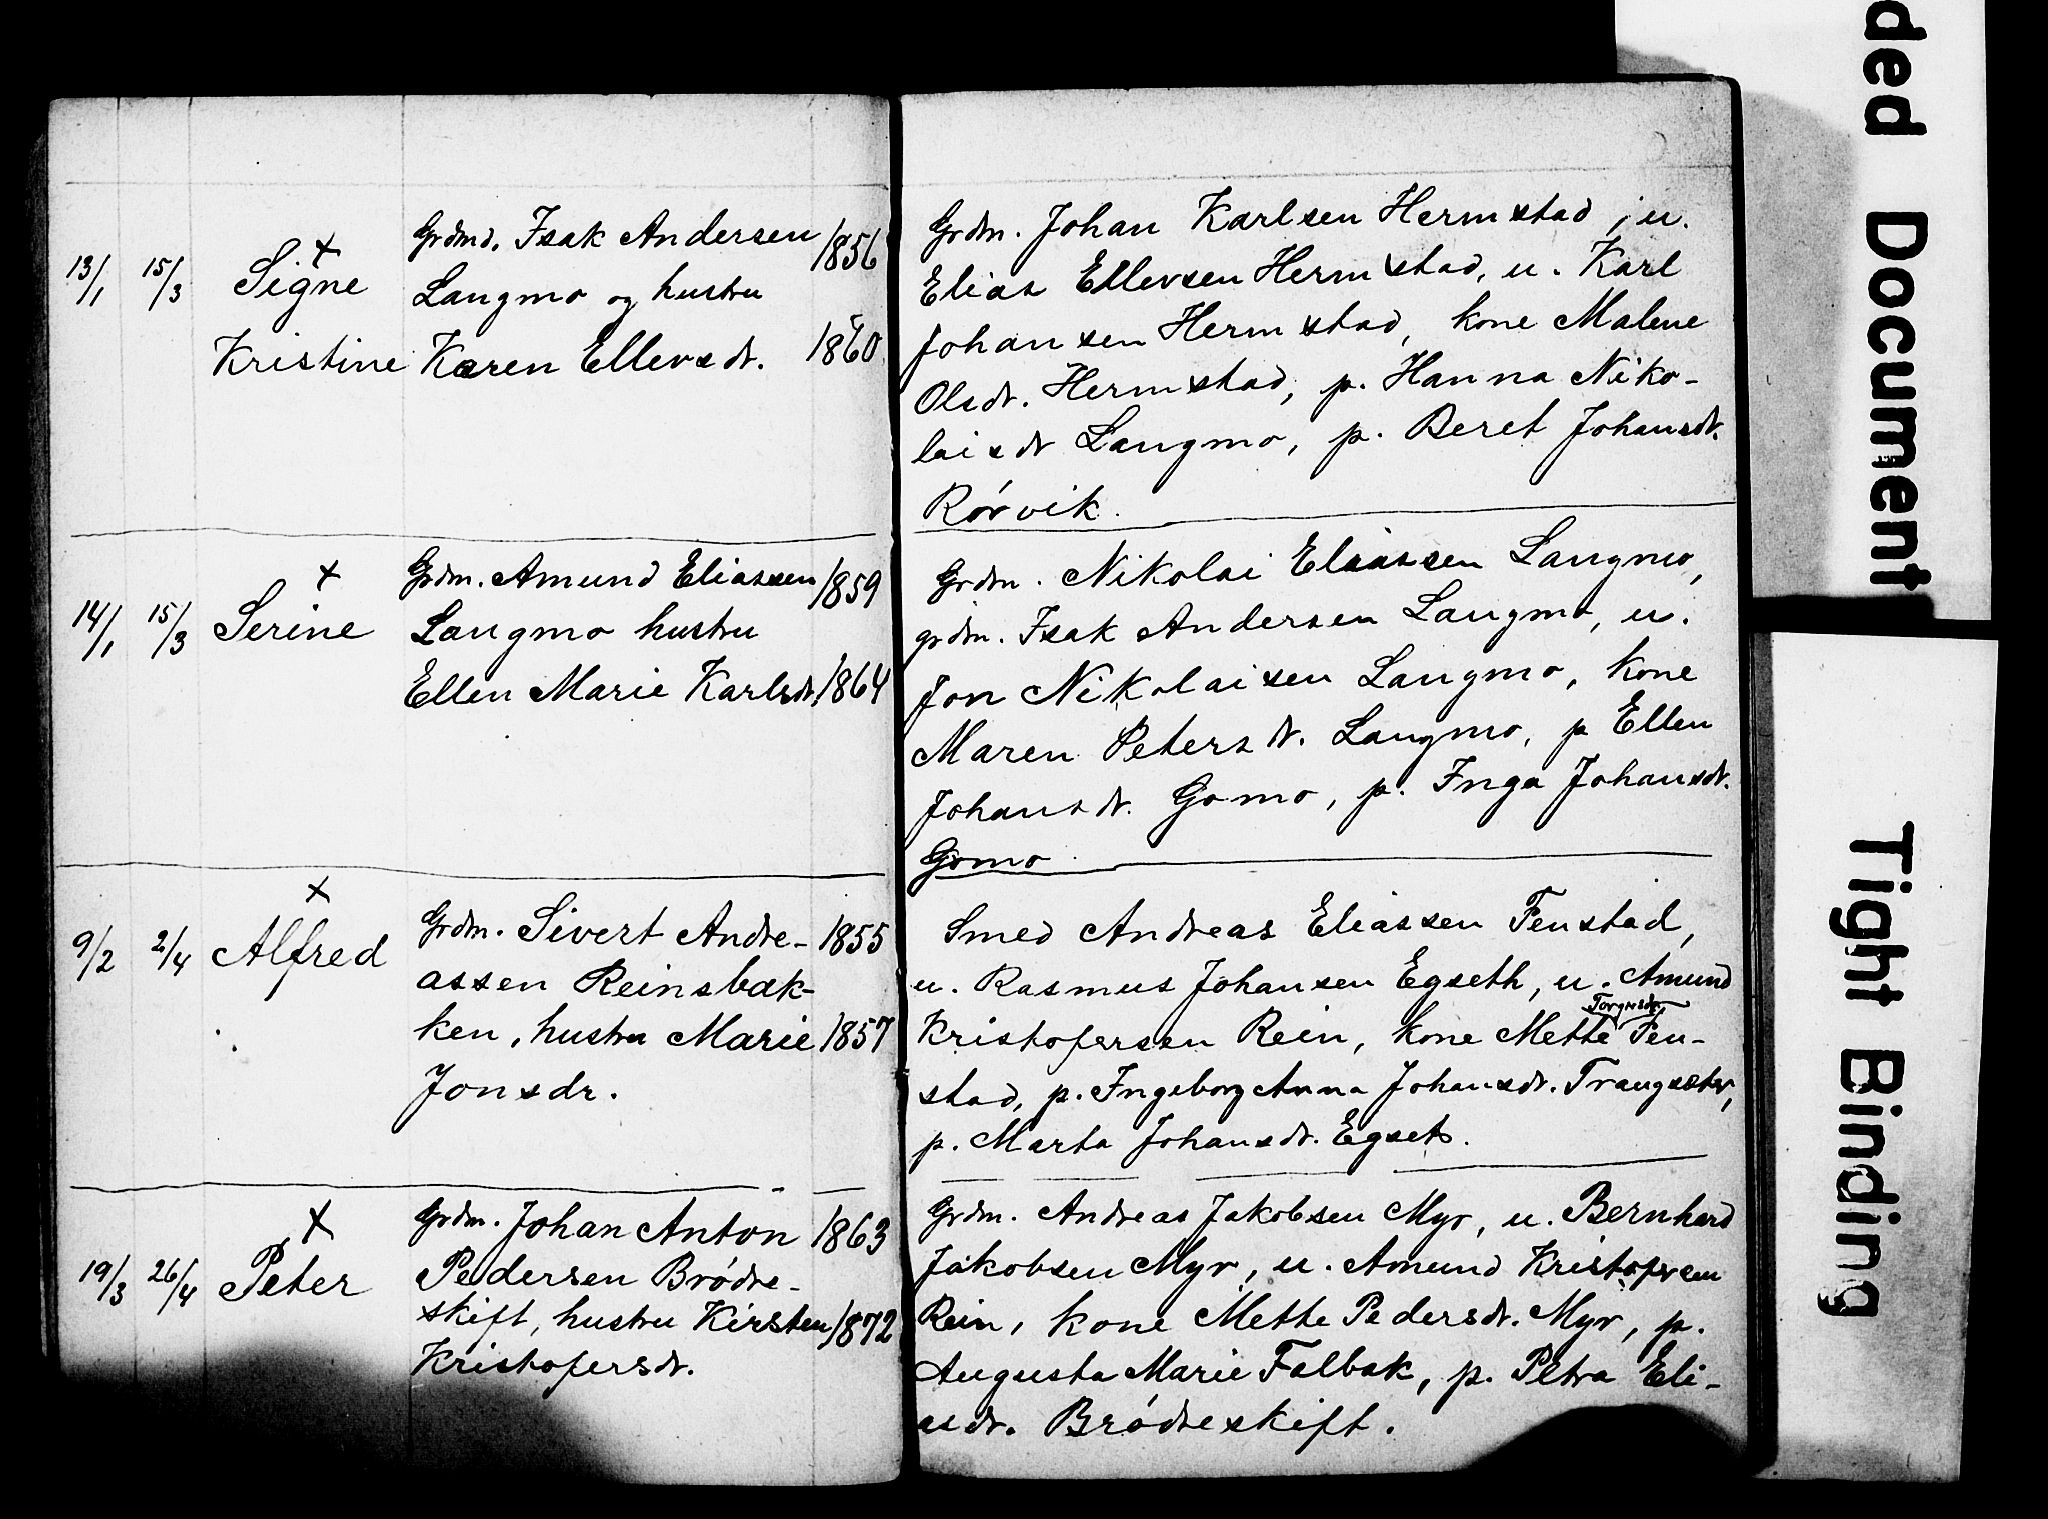 13/1 15/3 Signe Grdmd. Isak Andersen 1856
Langmo og hustru
Kristine Karen Ellevsdr. 1860
Grdm. Johan Karlsen Hermstad, u.
Elias Ellevsen Hermstad, u. Karl
Johansen Hermstad, kone Malene
Olsdr. Hermstad, p. Hanna Niko-
laisdr Langmo, p. Beret Johansdr.
Rörvik.
14/1 15/3 Serine Grdm. Amund Eliassen 1859
Langmo hustru
Ellen Marie Karlsdr. 1864
Grdm. Nikolai Eliassen Langmo,
grdm. Isak Andersen Langmo, u.
Jon Nikolaisen Langmo, kone
Maren Petersdr. Langmo, p Ellen
Johansdr. Gomo, p. Inga Johansdr.
Gomo
9/2 2/4 Alfred Grdm. Sivert Andre- 1855
assen Reinsbak-
ken, hustru Marie 1857
Jonsdr.
Smed Andreas Eliassen Fenstad,
u. Rasmus Johansen Egseth, u. Amund
Kristofersen Rein, kone Mette Torgersdr. Fen-
stad, p. Ingeborg Anna Johansdr. Trangsæter,
p. Marta Johansdr. Egset.
19/3 26/4 Peter Grdm. Johan Anton 1863
Pedersen Brödre-
skift, hustru Kirsten 1872
Kristofersdr.
Grdm. Andreas Jakobsen Myr, u. Bernhard
Jakobsen Myr, u. Amund Kristofersen
Rein, kone Mette Pedersdr. Myr, p.
Augusta Marie Falbak, p. Petra Eli-
asdr. Brödreskift.
ded Document
Tight Binding